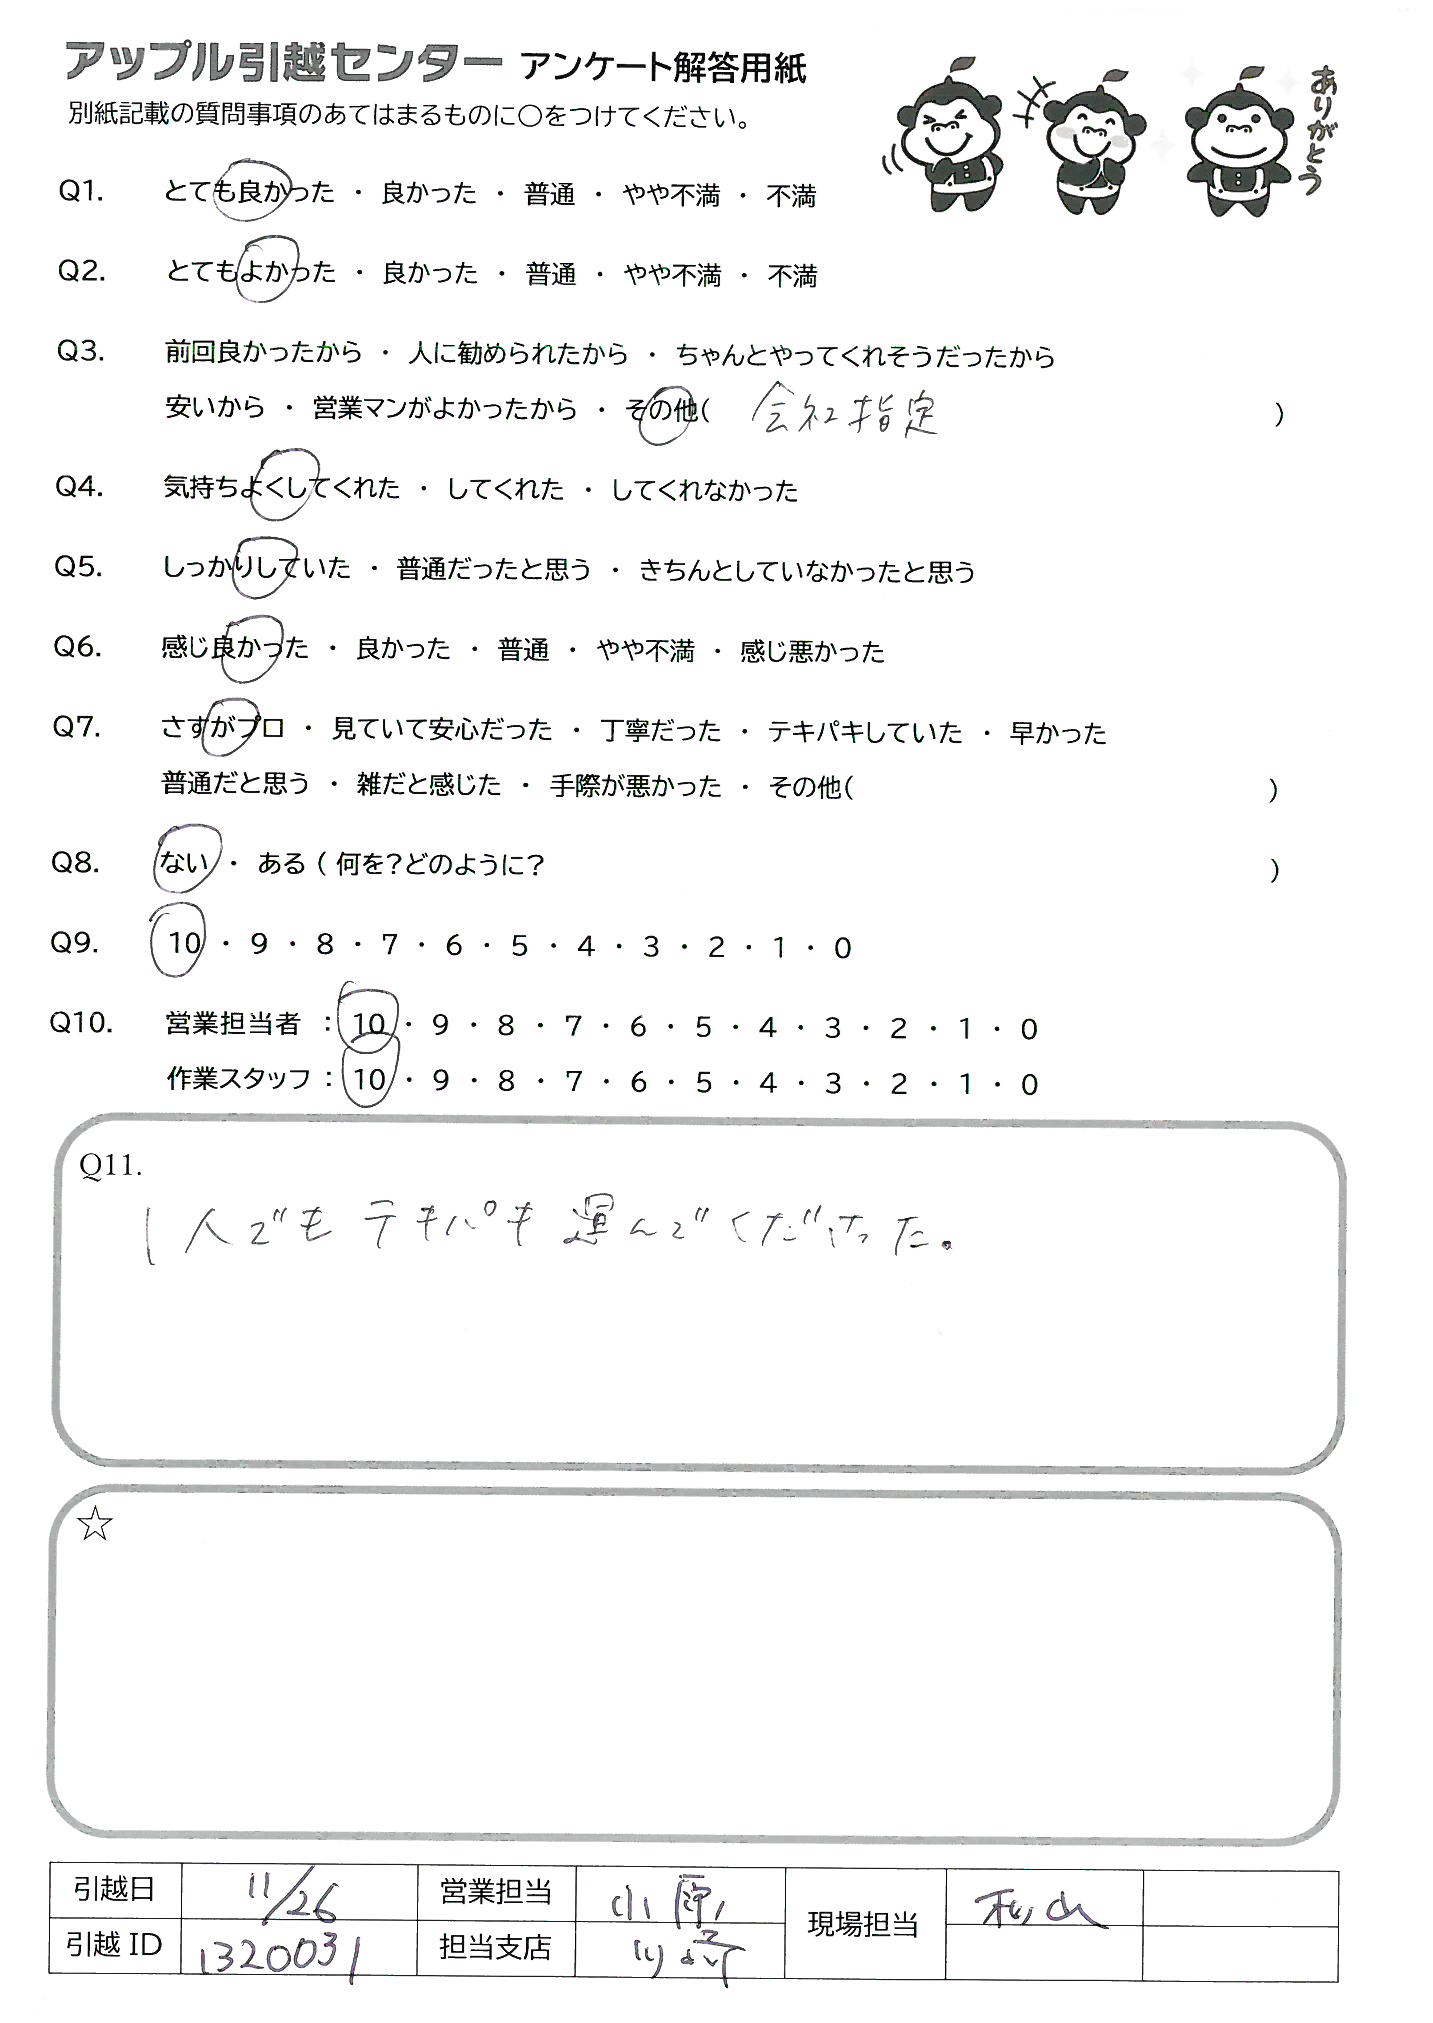 アップル引越センター アンケート解答用紙
別紙記載の質問事項のあてはまるものに○をつけてください。
ありがとう
Q1. とても良かった ・ 良かった ・ 普通 ・ やや不満 ・ 不満
Q2. とてもよかった ・ 良かった ・ 普通 ・ やや不満 ・ 不満
Q3. 前回良かったから ・ 人に勧められたから ・ ちゃんとやってくれそうだったから
安いから ・ 営業マンがよかったから ・ その他( 会社指定 )
Q4. 気持ちよくしてくれた ・ してくれた ・ してくれなかった
Q5. しっかりしていた ・ 普通だったと思う ・ きちんとしていなかったと思う
Q6. 感じ良かった ・ 良かった ・ 普通 ・ やや不満 ・ 感じ悪かった
Q7. さすがプロ ・ 見ていて安心だった ・ 丁寧だった ・ テキパキしていた ・ 早かった
普通だと思う ・ 雑だと感じた ・ 手際が悪かった ・ その他( )
Q8. ない ・ ある ( 何を?どのように? )
Q9. 10 ・ 9 ・ 8 ・ 7 ・ 6 ・ 5 ・ 4 ・ 3 ・ 2 ・ 1 ・ 0
Q10. 営業担当者 : 10 ・ 9 ・ 8 ・ 7 ・ 6 ・ 5 ・ 4 ・ 3 ・ 2 ・ 1 ・ 0
作業スタッフ : 10 ・ 9 ・ 8 ・ 7 ・ 6 ・ 5 ・ 4 ・ 3 ・ 2 ・ 1 ・ 0
Q11.
1人でもテキパキ運んでくださった。
☆
引越日 11/26 営業担当 小原 現場担当 秋山
引越ID 1320031 担当支店 川崎